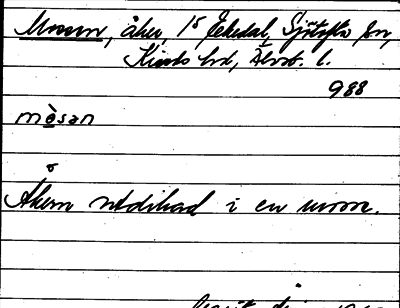 Mossen, åker, 15 Ekedal, Sjötofta sn,
Kinds hd, Älvsb. l.
988
mòsan
Åkern utdikad i en mosse.